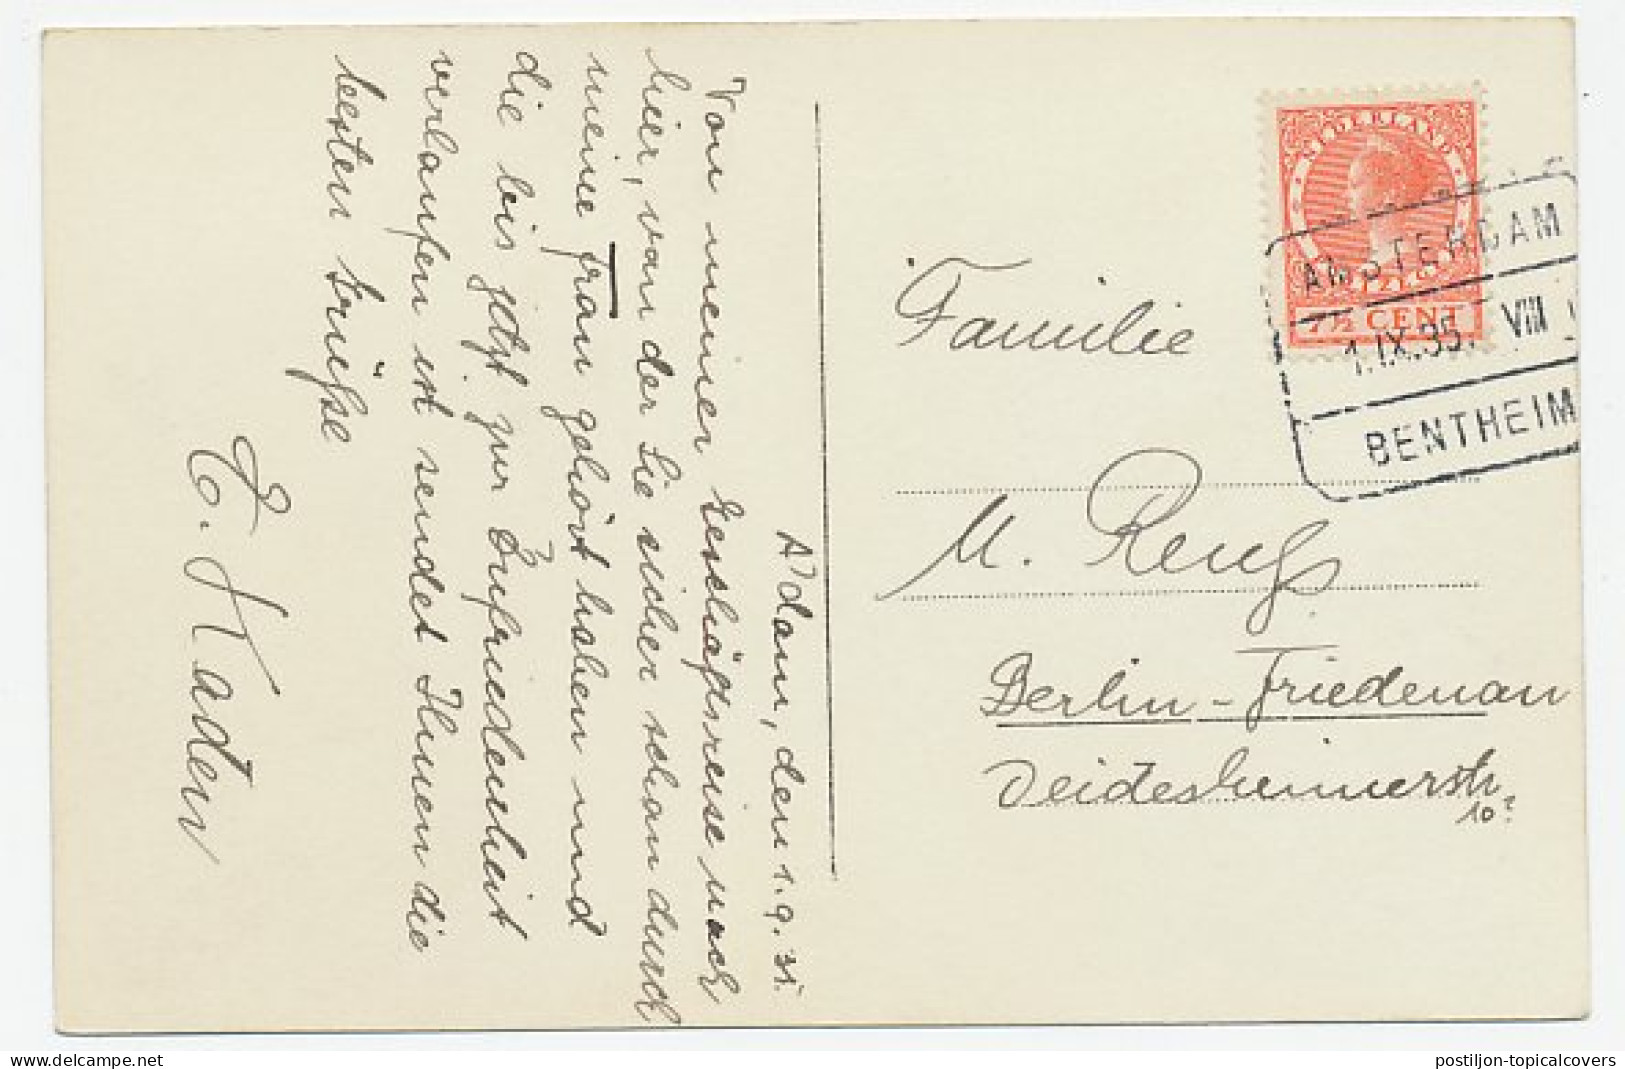 A'dam, den 1.9.35.
Von meiner Geschäftsreise nach
hier, von der Sie sicher schon durch
meine Frau gehört haben und
die bis jetzt zur Zufriedenheit
verlaufen ist sendet Ihnen die
besten Grüße
E. Kaden
NEDERLAND
7½ CENT
AMSTERDAM
1.IX.35. VIII
BENTHEIM
Familie
M. Reuß
Berlin-Friedenau
Deidesheimerstr.
10?
postiljon-topicalcovers